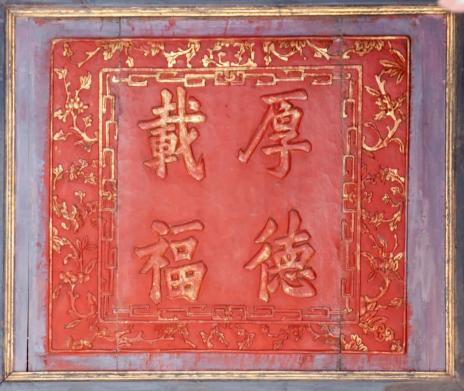 厚德
載福